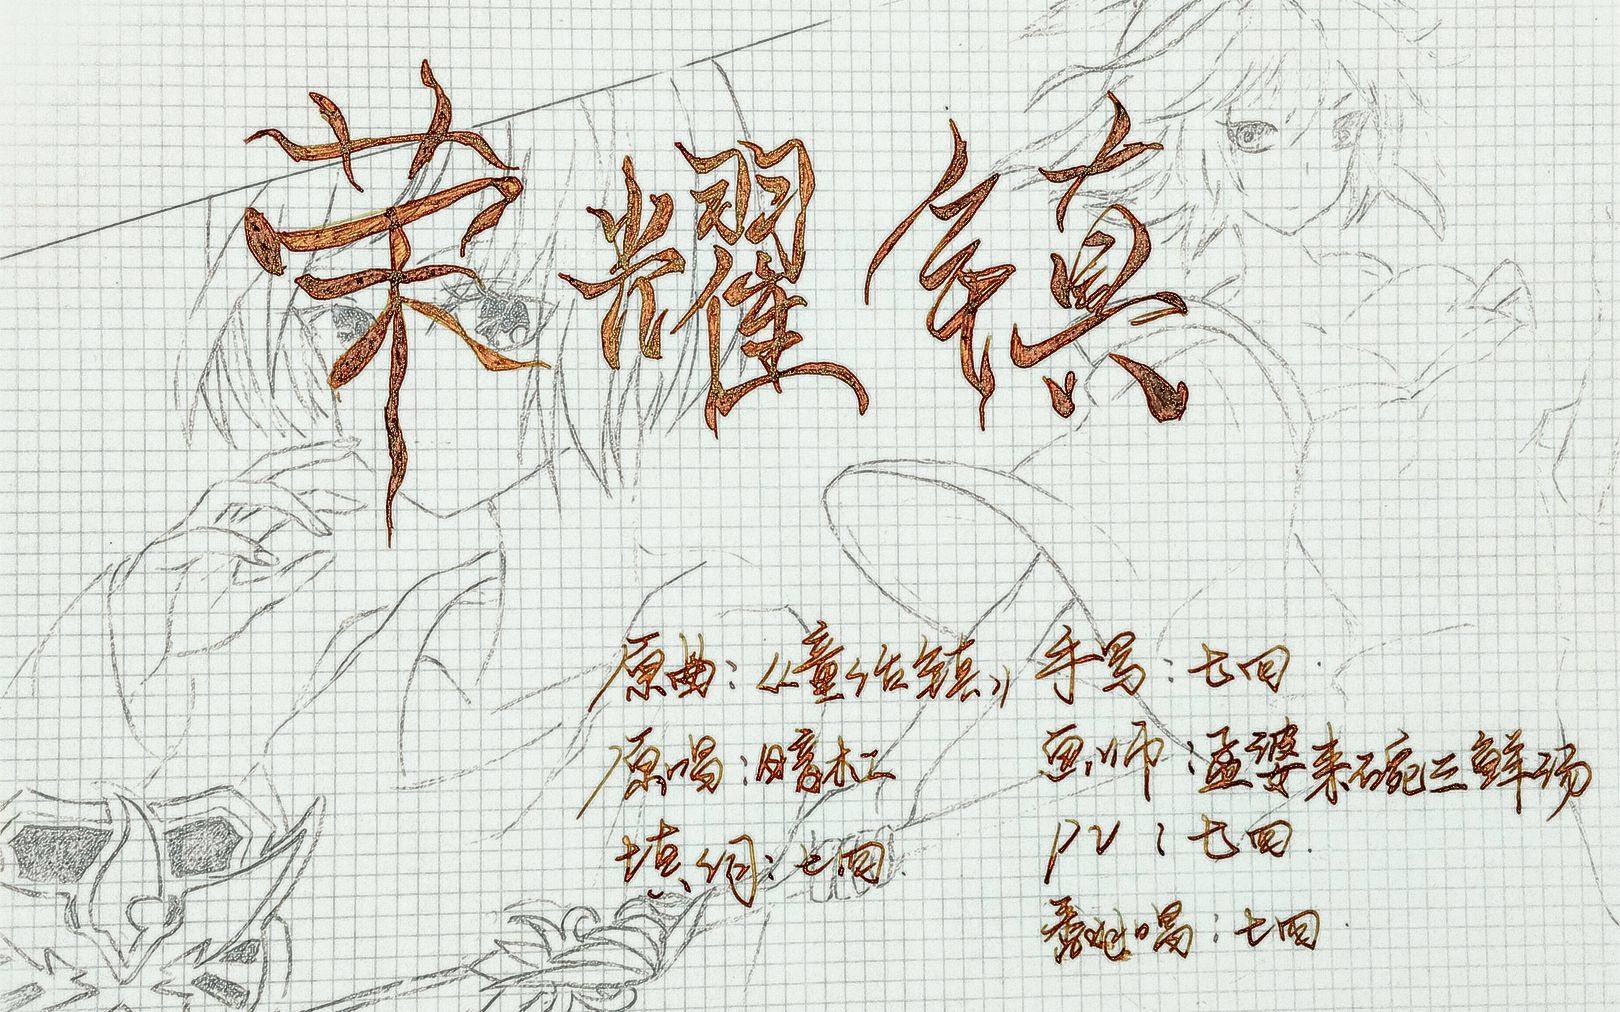 荣耀镇
原曲：《童话镇》
原唱：暗杠
填词：七四
手写：七四
画师：孟婆来碗三鲜汤
PV：七四
翻唱：七四